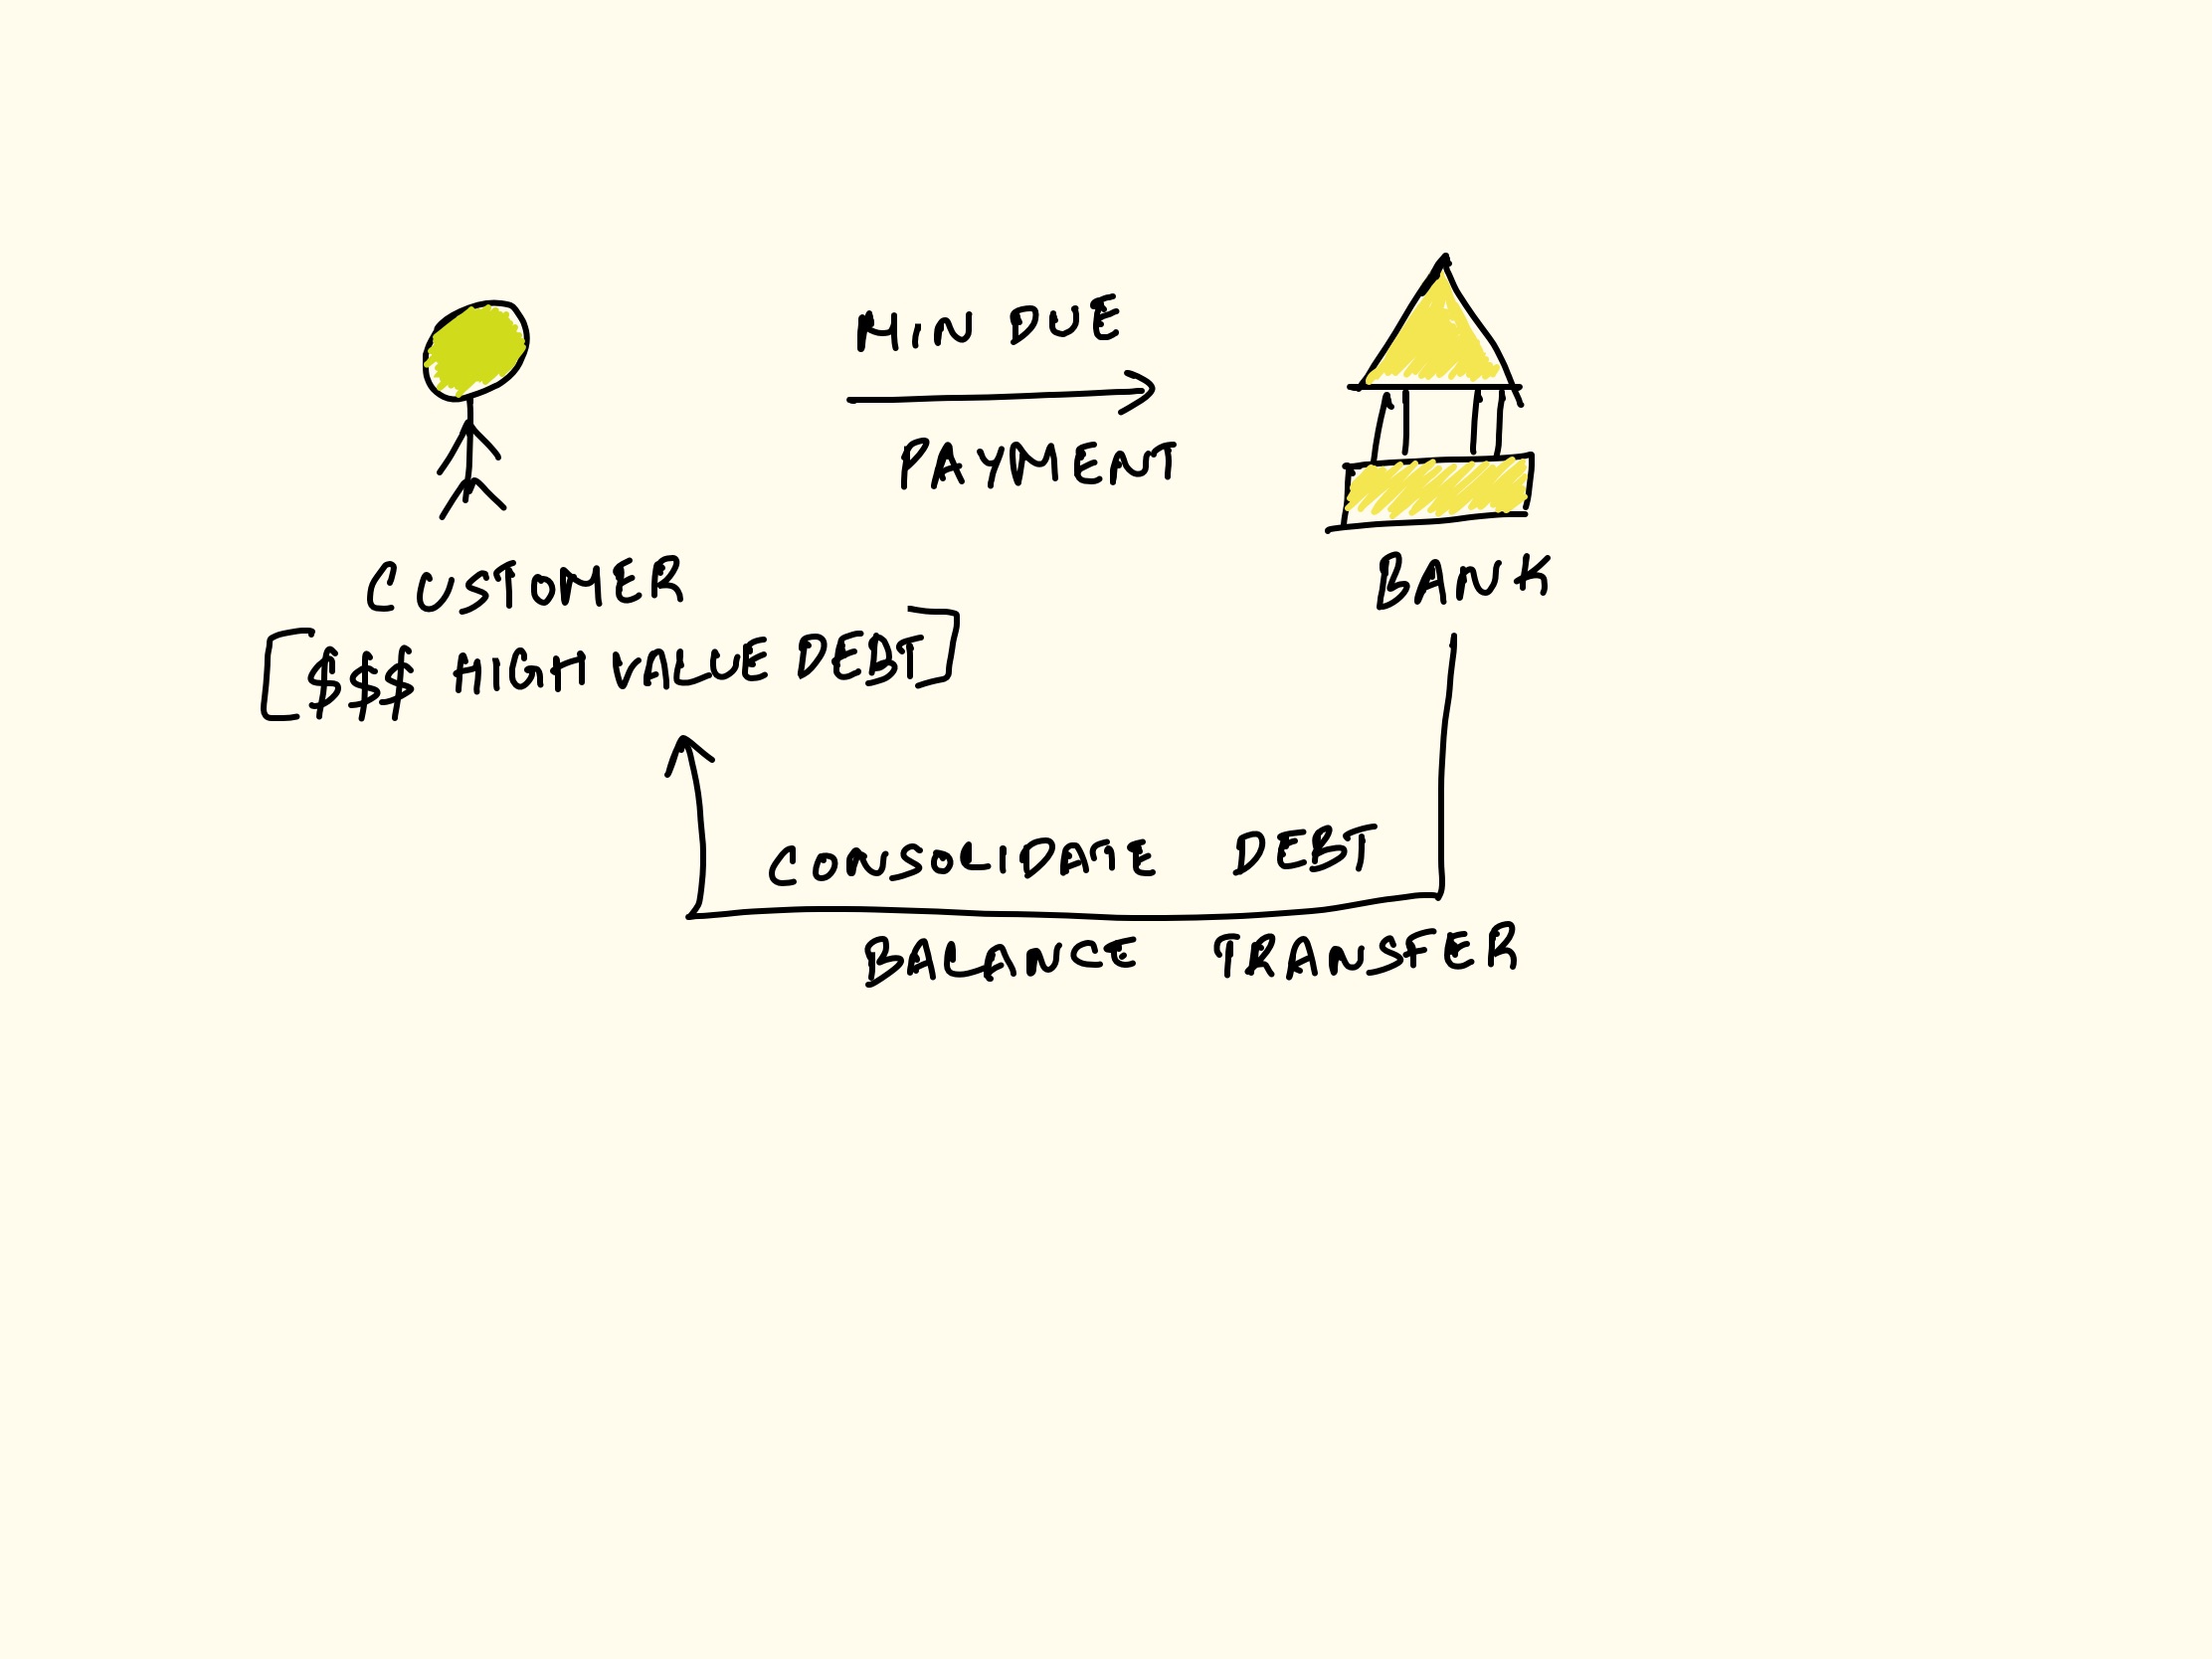 MIN DUE
PAYMENT
CUSTOMER
BANK
[$$$ HIGH VALUE DEBT]
CONSOLIDATE DEBT
BALANCE TRANSFER